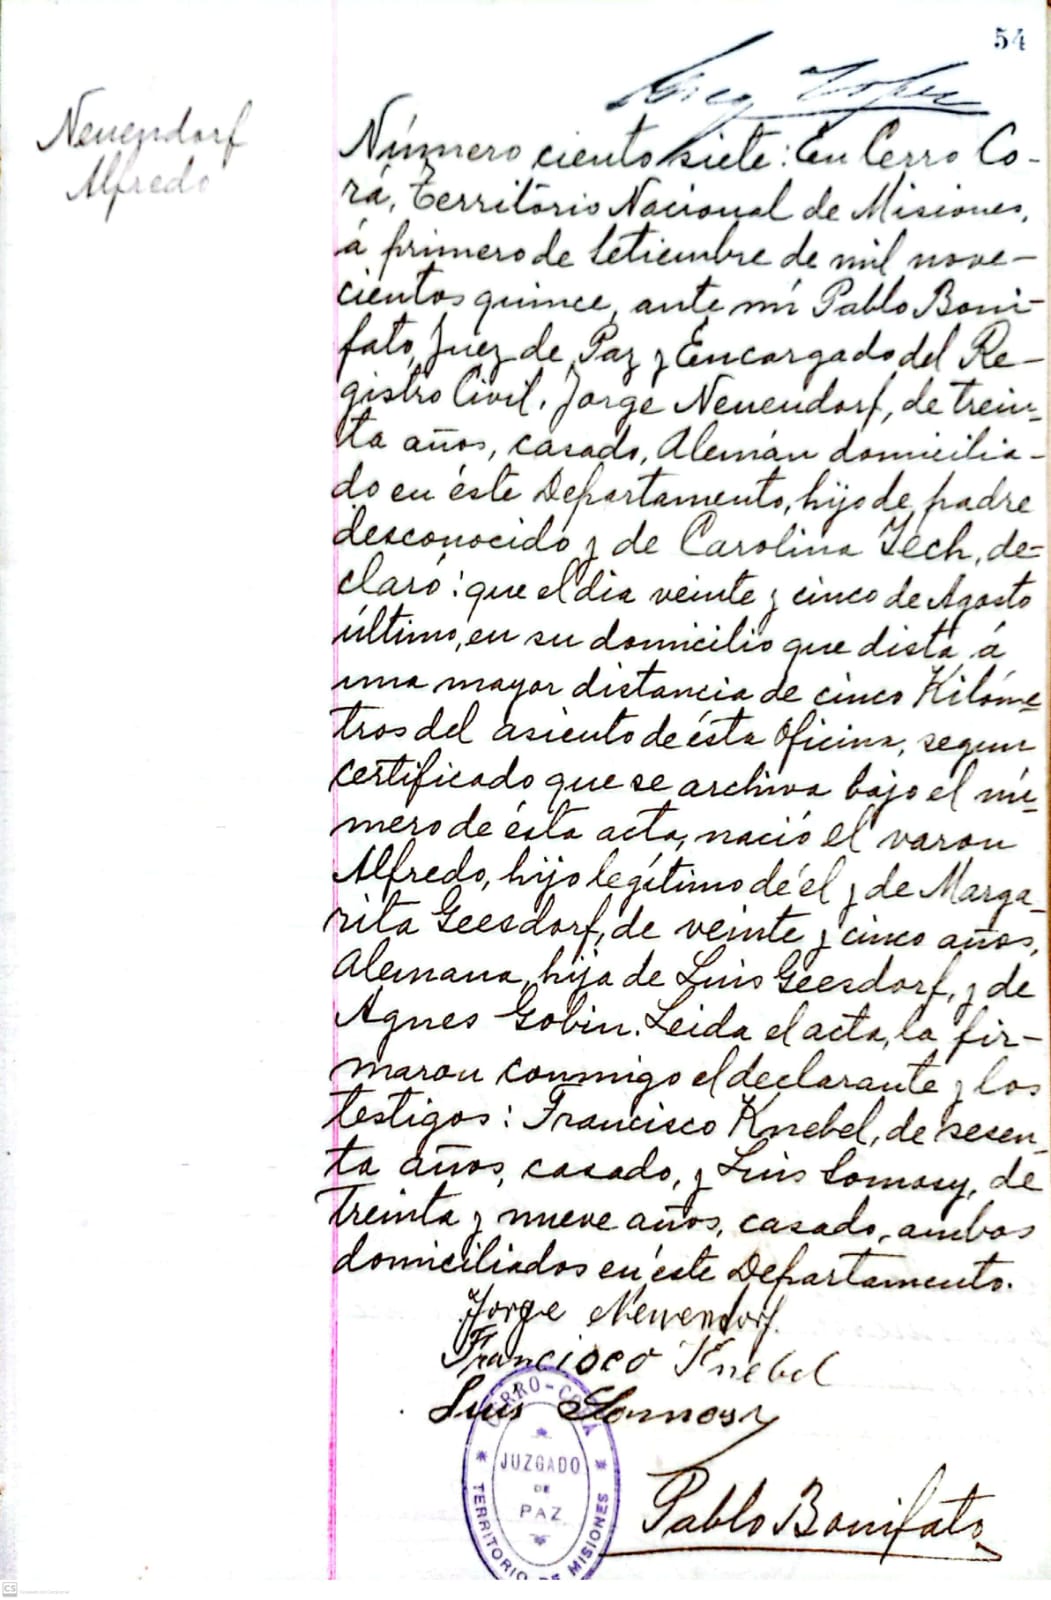 54
Greg Lopez
Neuendorf
Alfredo
Número ciento siete: En Cerro Co-
rá, Territorio Nacional de Misiones,
á primero de Setiembre de mil nove-
cientos quince, ante mí Pablo Boni-
fato, Juez de Paz y Encargado del Re-
gistro Civil, Jorge Neuendorf, de trein-
ta años, casado, Alemán domicilia-
do en éste Departamento, hijo de padre
desconocido y de Carolina Tech, de-
claró: que el dia veinte y cinco de Agosto
último, en su domicilio que dista á
una mayor distancia de cinco Kilóme-
tros del asiento de ésta Oficina, segun
certificado que se archiva bajo el nú-
mero de ésta acta, nació el varon
Alfredo, hijo legítimo de él y de Marga-
rita Geesdorf, de veinte y cinco años,
Alemana, hija de Luis Geesdorf, y de
Agnes Gobin. Leida el acta, la fir-
maron conmigo el declarante y los
testigos: Francisco Knebel, de sesen-
ta años, casado, y Luis Somosy, de
treinta y nueve años, casado, ambos
domiciliados en éste Departamento.
Jorge Neuendorf.
Francisco Knebel
Luis Somosy
CERRO-CORÁ
JUZGADO
DE
PAZ
TERRITORIO DE MISIONES
Pablo Bonifato
CS